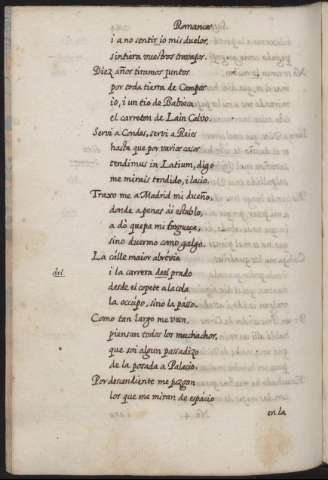 Romances
i a no sentir io mis duelos,
sintiera vuestros trabajos.
Diez años tiramos juntos
por toda tierra de Campos
io, i un tio de Babieca
el carreton de Lain Calvo.
Servi a Condes, servi a Reies
hasta que por varios casos
tendimus in Latium, digo
me mirais tendido, i lacio.
Traxo me a Madrid mi dueño,
donde a penas ai establo,
a dò quepa mi
sino duermo como galgo.
La calle maior abrevia
del i la carrera prado
desde el copete a la cola
la occupo, sino la passo.
Como tan largo me vien,
piensan todos los muchachos,
que soi algun passadizo
de la posada a Palacio.
Por descendiente me juzgan
los que me miran de espacio
en la